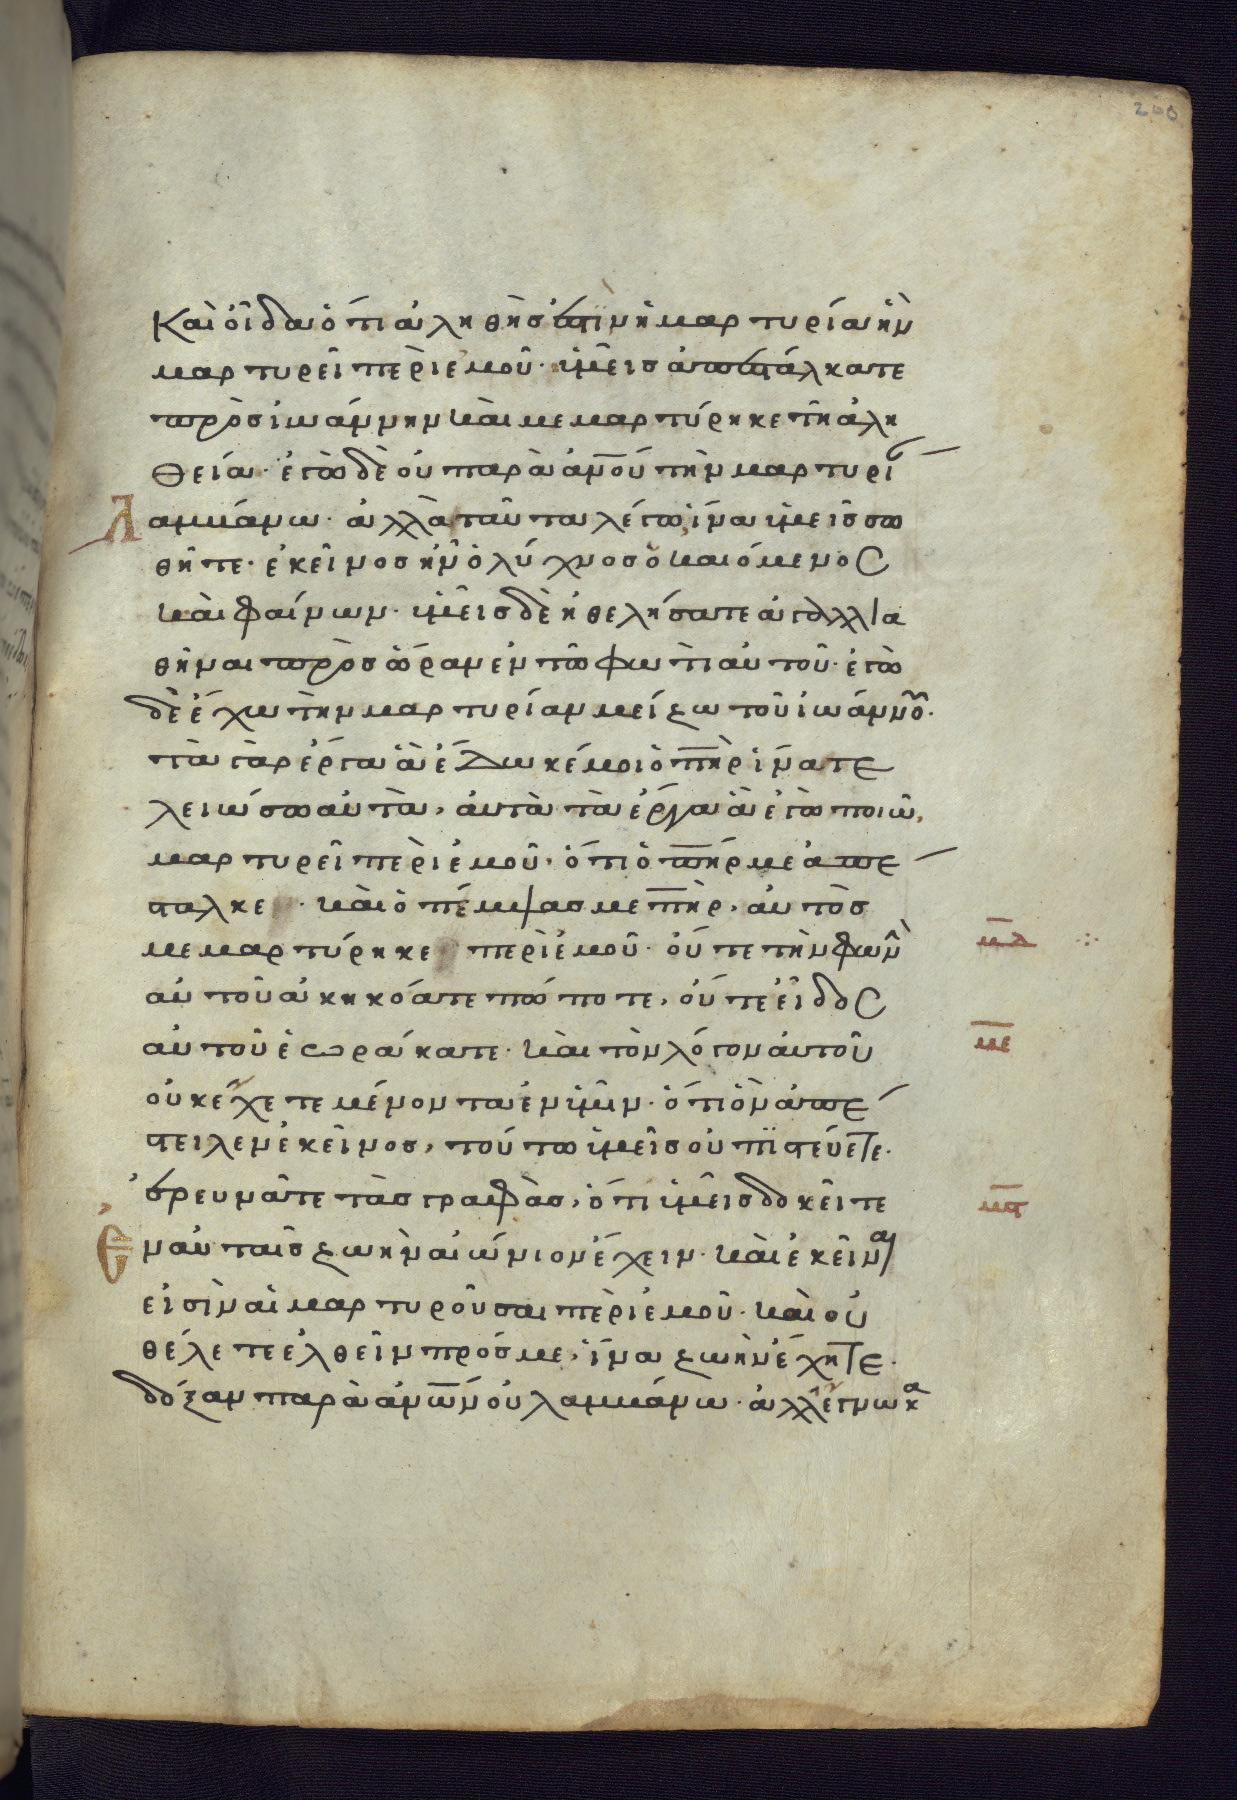 200
Καὶ οἶδα ὅτι ἀληθής ἐστιν ἡ μαρτυρία ἣν
μαρτυρεῖ περὶ ἐμοῦ· ὑμεῖς ἀπεστάλκατε
πρὸς ἰωάννην καὶ μεμαρτύρηκε τῇ ἀλη
θεία· ἐγὼ δὲ οὐ παρὰ ἀνου τὴν μαρτυρί
αμβάνω· ἀλλὰ ταῦτα λέγω ἵνα ὑμεῖς σω
Λ
θῆτε· ἐκεῖνος ἦν ὁ λύχνος ὁ καιόμενος
καὶ φαίνων· ὑμεῖς δὲ ἠθελήσατε ἀγαλλια
θῆναι πρὸς ὥραν ἐν τῶ φωτὶ αὐτοῦ· ἐγὼ
δὲ ἔχω τὴν μαρτυρίαν μείζω τοῦ ἰωάννου·
τὰ γὰρ ἔργα ἃ ἔδωκέ μοι ὁ πηρ ἵνα τε
λειώσω αὐτὰ, αὐτὰ τὰ ἔργα ἃ ἐγὼ ποιῶ,
μαρτυρεῖ περὶ ἐμοῦ, ὅτι ὁ πηρ με ἀπέ
σταλκε · καὶ ὁ πέμψας με πηρ, αὐτὸς
μεμαρτύρηκε περὶ ἐμοῦ· οὔτε τὴν φωνὴ
μδ
αὐτοῦ ἀκηκόατε πώποτε, οὔτε εἶδος
αὐτοῦ ἑωράκατε· καὶ τὸν λόγον αὐτοῦ
με
οὐκ ἔχετε μένοντα ἐν ὑμῖν· ὅτι ὃν ἀπέ
στειλεν ἐκεῖνος, τούτω ὑμεῖς οὐ πιστεύετε·
ἐρευνᾶτε τὰς γραφὰς, ὅτι ὑμεῖς δοκεῖτε
μς
Ε
ν αὐταῖς ζωὴν αἰώνιον ἔχειν· καὶ ἐκεῖναι
εἰσὶν αἱ μαρτυροῦσαι περὶ ἐμοῦ· καὶ οὐ
θέλετε ἐλθεῖν πρός με, ἵνα ζωὴν ἔχητε·
δόξαν παρὰ ἀνων οὐ λαμβάνω· ἀλλ ἔγνωκα